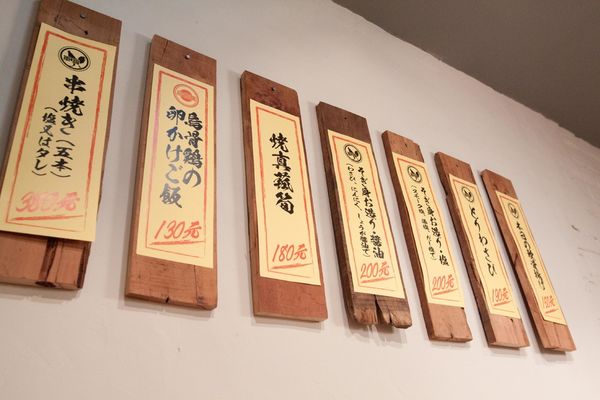 串焼き(五本)
(塩又はタレ)
烏骨鶏の
卵かけご飯
130元
焼真菰筍
180元
そぎ身お造り・醤油
(わさび、にんにく、しょうが醤油で)
200元
そぎ身お造り・塩
200元
とりわさび
190元